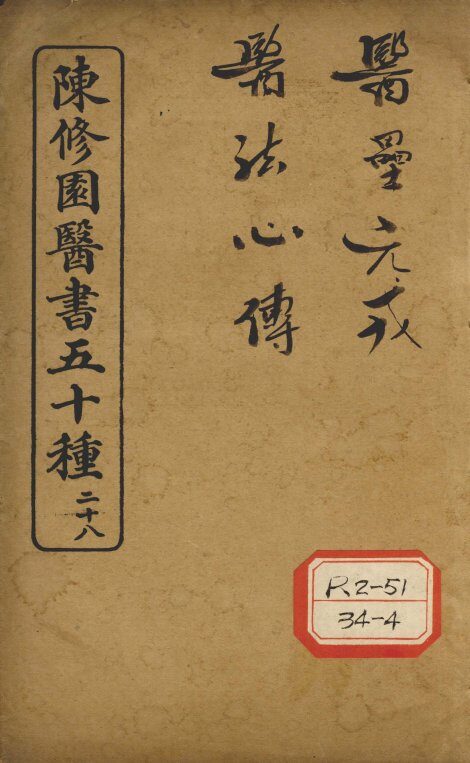 醫壘元戎
醫法心傳
陳修園醫書五十種 二十八
R2-51
34-4